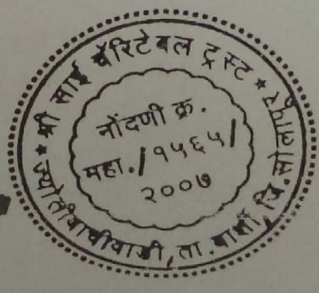 * श्री साई चॅरिटेबल ट्रस्ट *
ज्योतीबाचीवाडी, ता. बार्शी, जि. सोलापूर
नोंदणी क्र.
महा./१५६५/
२००७